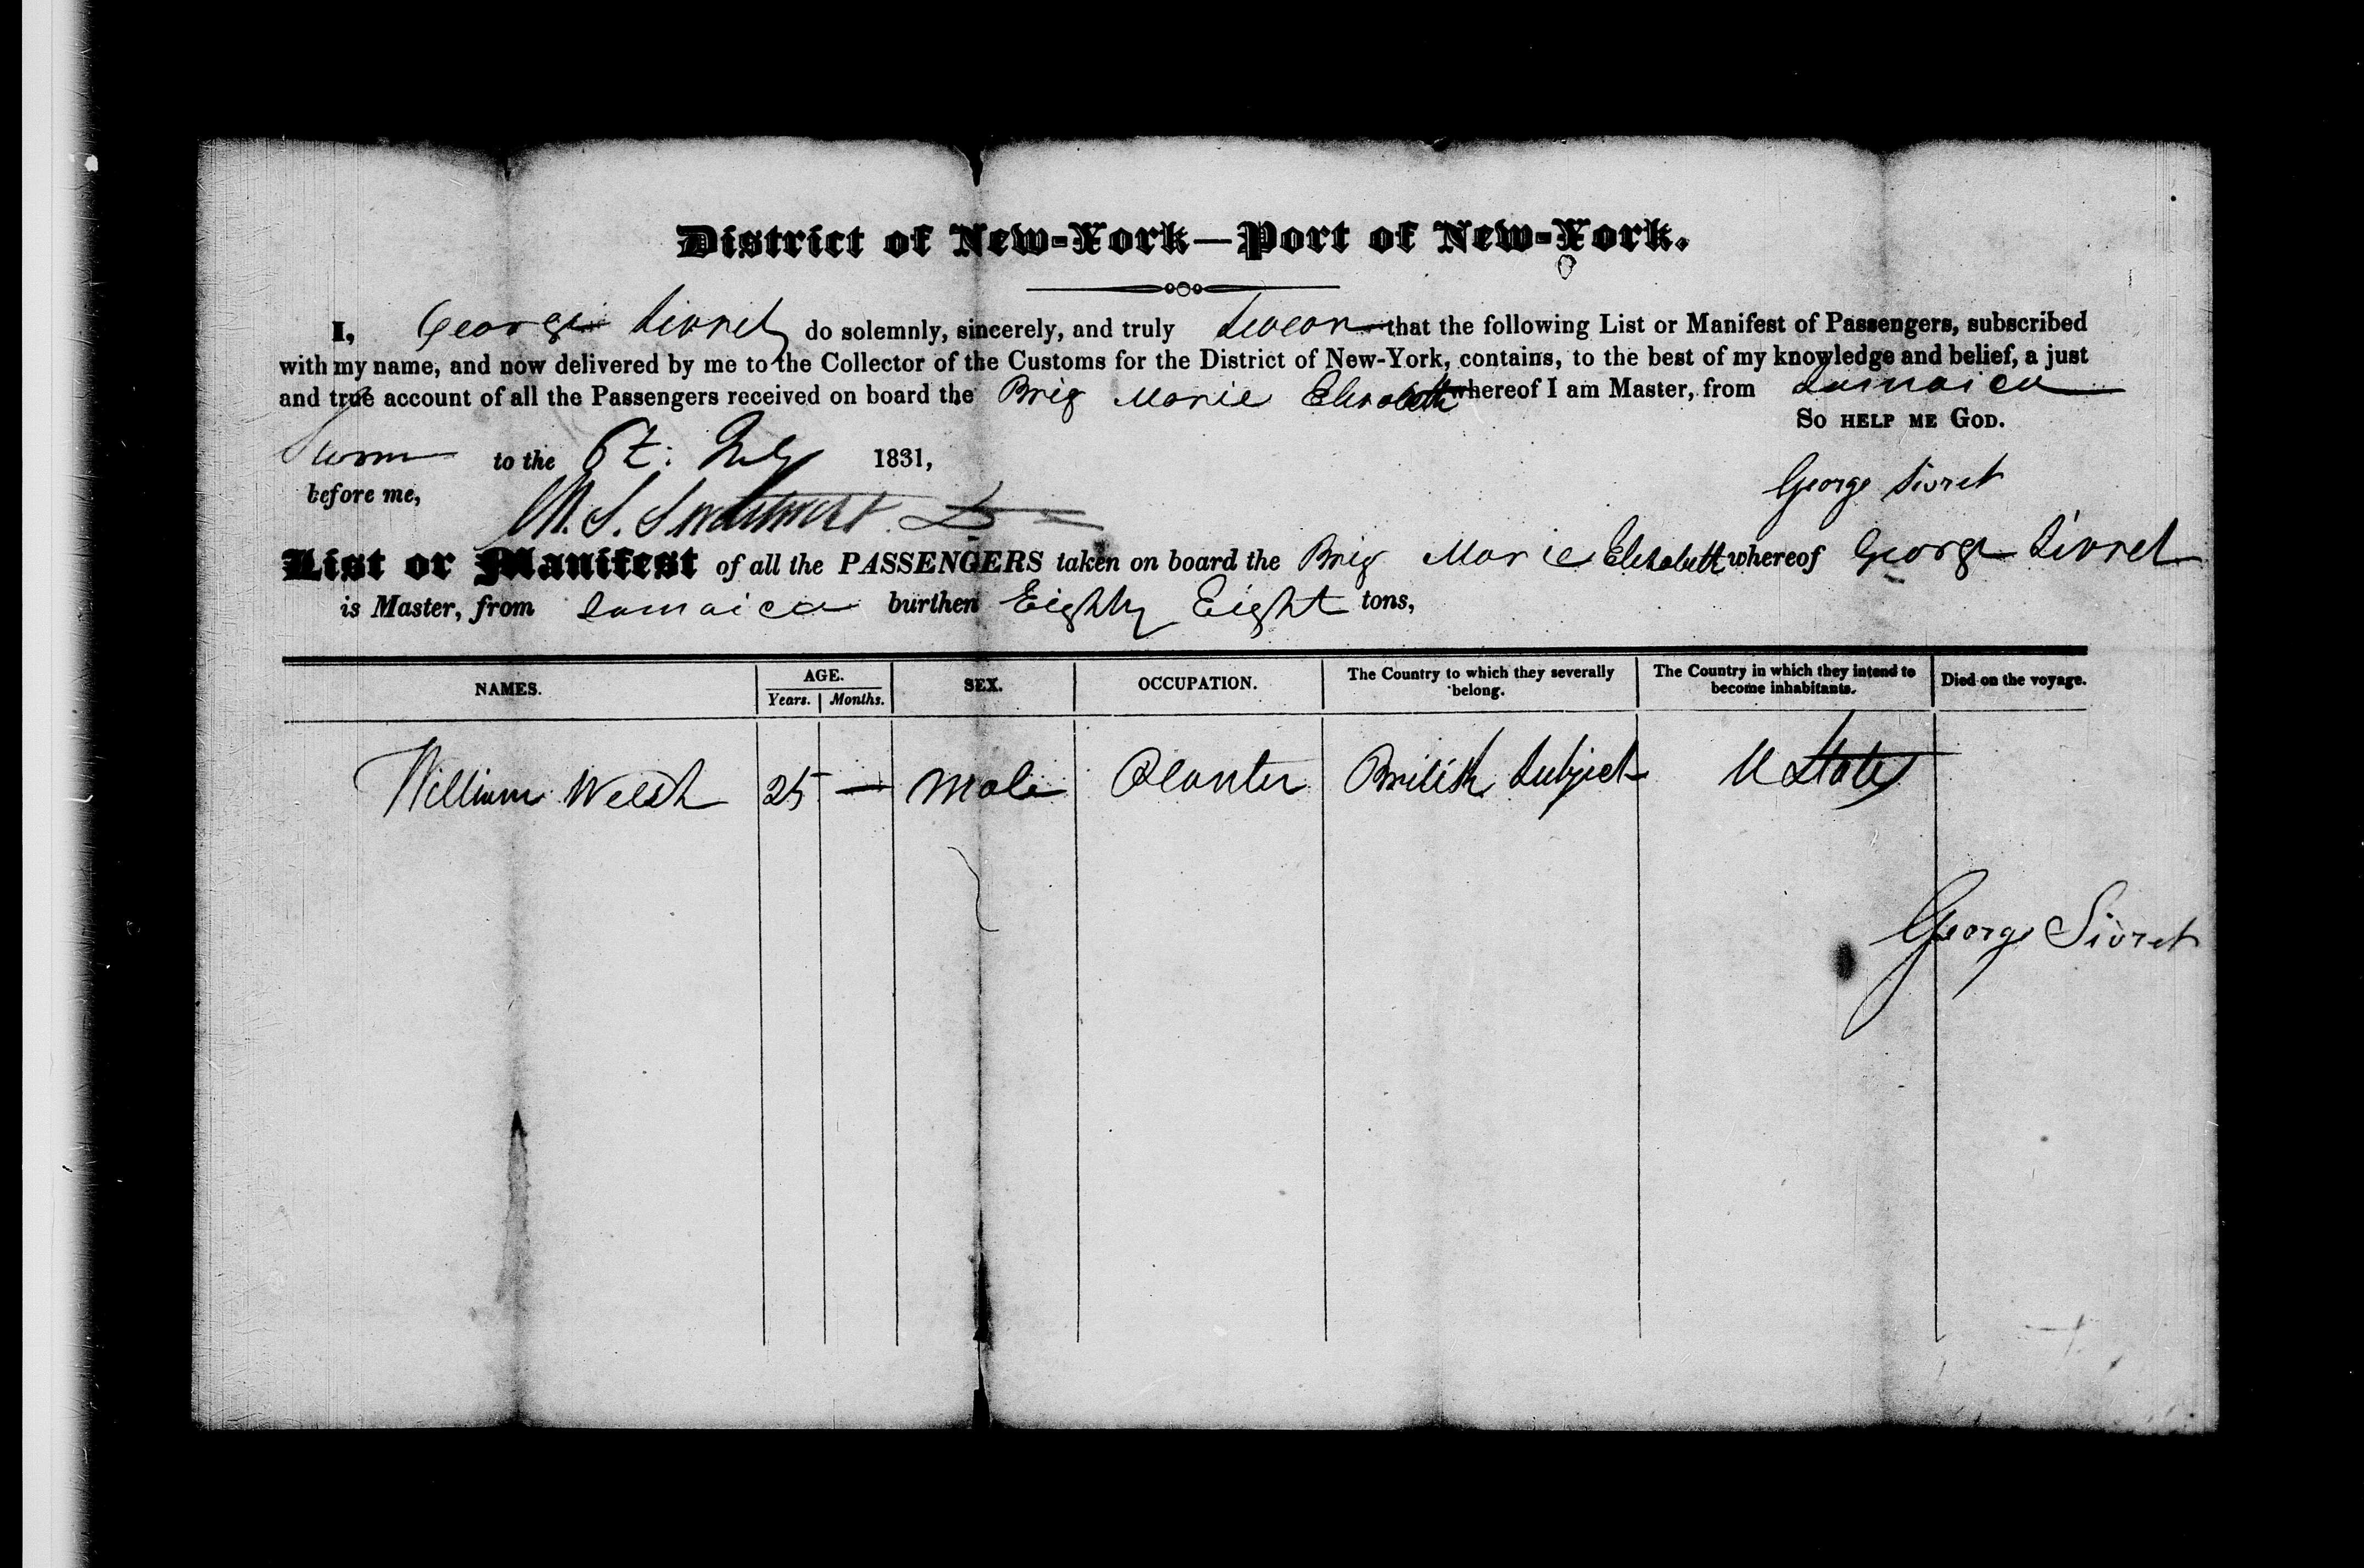 District of New-York—Port of New-York.
I, George Sivret do solemnly, sincerely, and truly Swear that the following List or Manifest of Passengers, subscribed
with my name, and now delivered by me to the Collector of the Customs for the District of New-York, contains, to the best of my knowledge and belief, a just
and true account of all the Passengers received on board the Brig Marie Elizabeth whereof I am Master, from Jamaica
So help me God.
Sworn to the 6th July 1831,
before me, George Sivret
List or Manifest of all the PASSENGERS taken on board the Brig Marie Elizabeth whereof George Sivret
is Master, from Jamaica burthen Eighty Eight tons,
NAMES. AGE. SEX. OCCUPATION. The Country to which they severally belong. The Country in which they intend to become inhabitants. Died on the voyage.
Years. Months.
William Welsh 25 — Male Planter British Subject U States
George Sivret